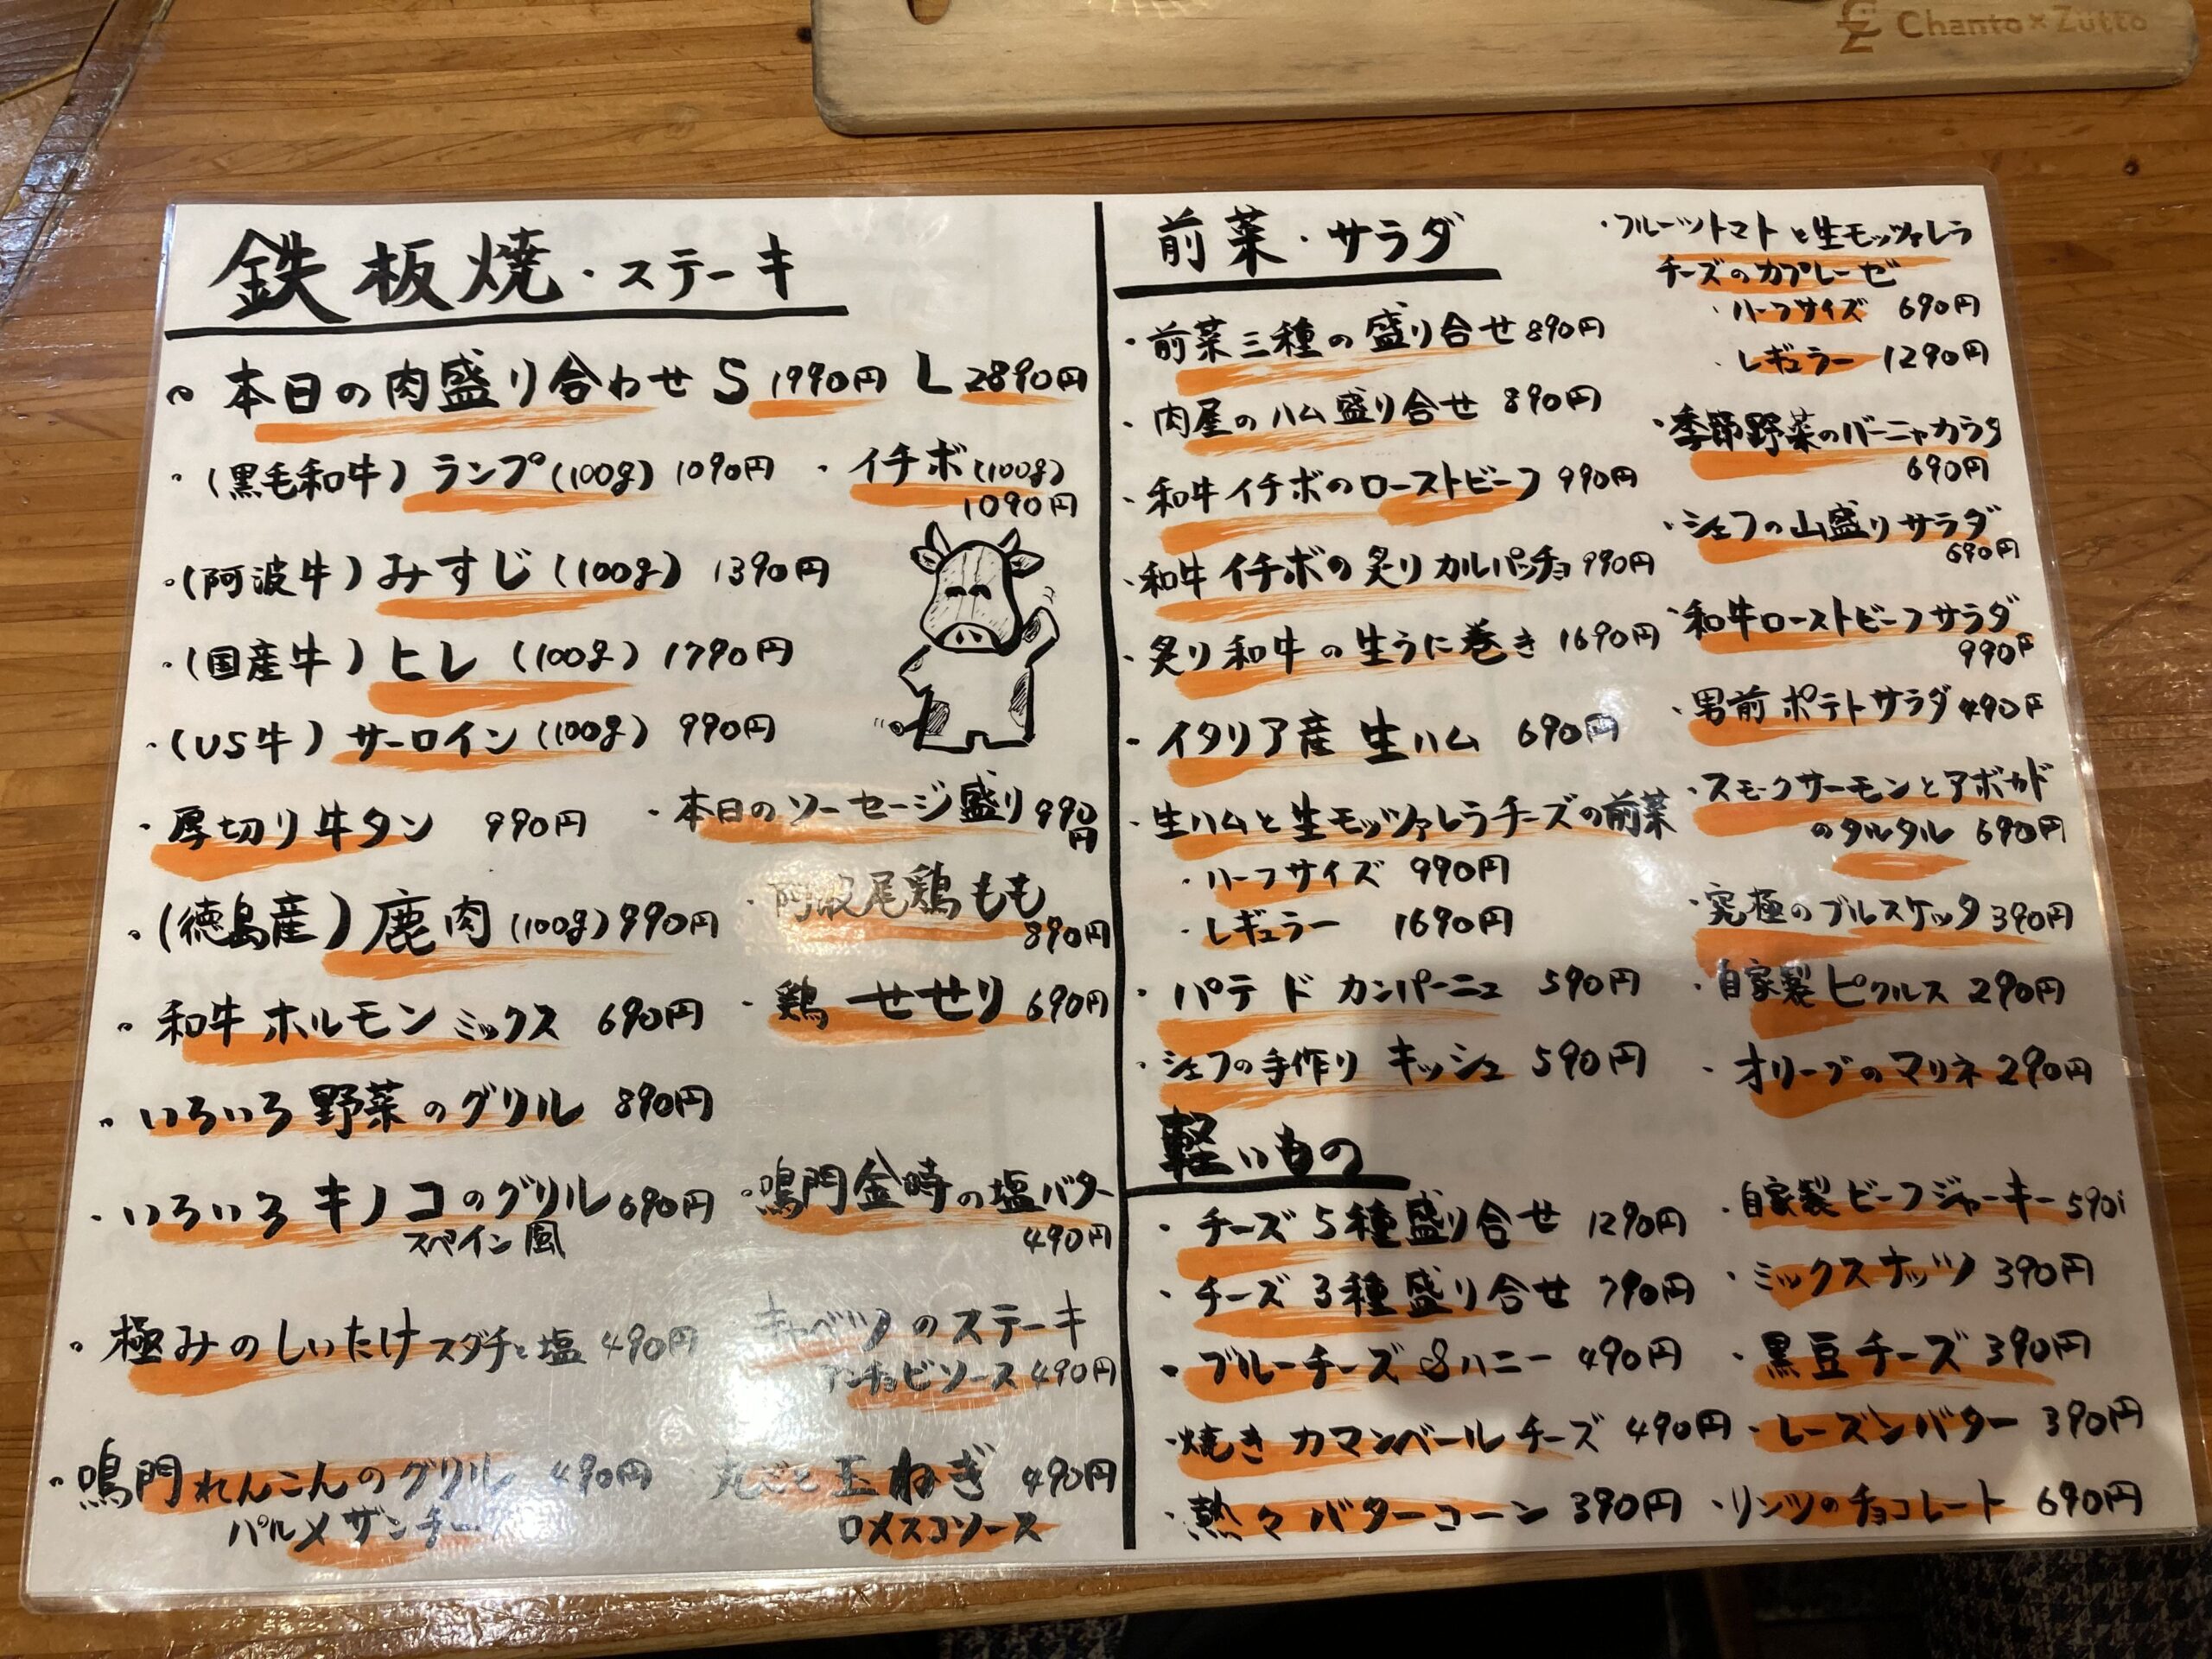 Chanto×Zutto
鉄板焼・ステーキ
・本日の肉盛り合わせ S 1990円 L 2890円
・(黒毛和牛)ランプ(100g) 1090円
・イチボ(100g)
1090円
・(阿波牛)みすじ(100g) 1390円
・(国産牛)ヒレ(100g) 1790円
・(US牛)サーロイン(100g) 990円
・厚切り牛タン 990円
・本日のソーセージ盛り 990円
・(徳島産)鹿肉(100g) 990円
・阿波尾鶏もも
890円
・和牛ホルモンミックス 690円
・鶏せせり 690円
・いろいろ野菜のグリル 890円
・いろいろキノコのグリル 690円
スペイン風
・鳴門金時の塩バター
490円
・極みのしいたけ スダチと塩 490円
キャベツのステーキ
アンチョビソース 490円
・鳴門れんこんのグリル 490円
パルメザンチーズ
丸ごと玉ねぎ 490円
ロメスコソース
前菜・サラダ
・前菜三種の盛り合せ 890円
・肉屋のハム盛り合せ 890円
・和牛イチボのローストビーフ 990円
・和牛イチボの炙りカルパッチョ 990円
・炙り和牛の生うに巻き 1690円
・イタリア産 生ハム 690円
・生ハムと生モッツァレラチーズの前菜
・ハーフサイズ 990円
・レギュラー 1690円
・パテ ド カンパーニュ 590円
・シェフの手作り キッシュ 590円
・フルーツトマトと生モッツァレラ
チーズのカプレーゼ
・ハーフサイズ 690円
・レギュラー 1290円
・季節野菜のバーニャカウダ
690円
・シェフの山盛りサラダ
690円
・和牛ローストビーフサラダ
990円
・男前ポテトサラダ 490円
・スモークサーモンとアボカド
のタルタル 690円
・究極のブルスケッタ 390円
・自家製ピクルス 290円
・オリーブのマリネ 290円
軽いもの
・チーズ5種盛り合せ 1290円
・チーズ3種盛り合せ 790円
・ブルーチーズ&ハニー 490円
・焼きカマンベールチーズ 490円
・熱々バターコーン 390円
・自家製ビーフジャーキー 590
・ミックスナッツ 390円
・黒豆チーズ 390円
・レーズンバター 390円
・リンツのチョコレート 690円